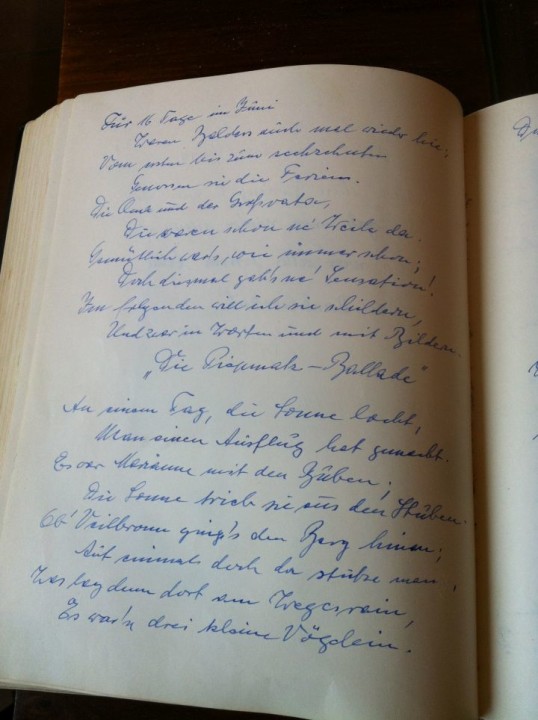 Für 16 Tage im Juni
Waren Balders auch mal wieder hie;
Vom ersten bis zum sechzehnten
Genossen sie die Ferien.
Die und der Großvater,
Die waren schon ne' Weile da.
Gemütlich war's, wie immer schon;
Doch diesmal gab's ne' Sensation!
Im folgenden will ich sie schildern,
Und zwar in Worten und mit Bildern.
"Die Piepmatz – Ballade"
An einem Tag, die Sonne lacht,
Man einen Ausflug hat gemacht.
Es war Marianne mit den Buben;
Die Sonne trieb sie aus den Stuben.
Ob' Veilbronn ging's den Berg hinan;
Auf einmal doch da stutzte man,
Was lag denn dort am Wegesrain,
Es war'n drei kleine Vögelein.